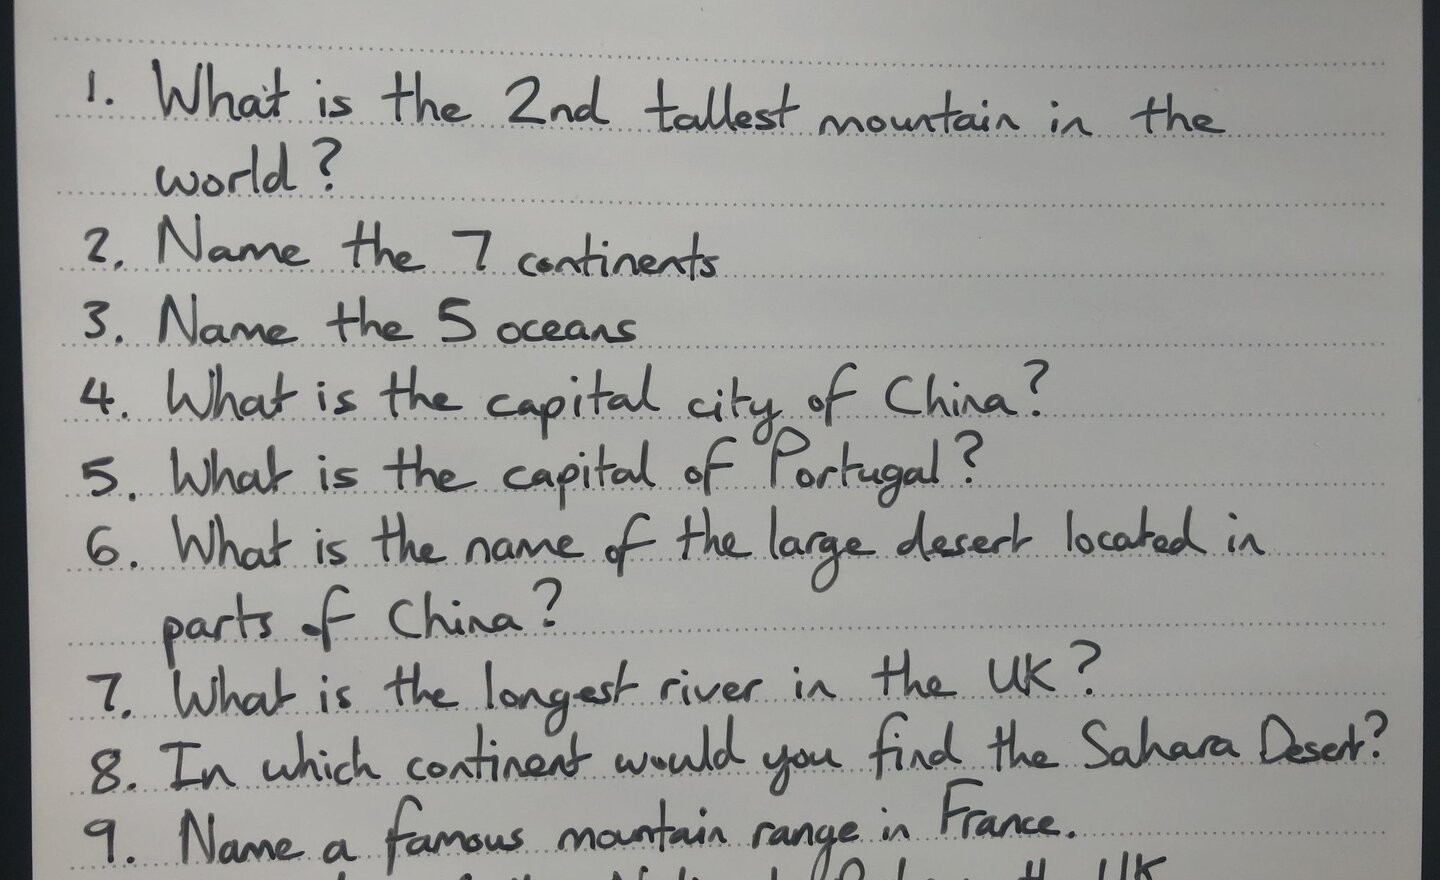 1. What is the 2nd tallest mountain in the
world?
2. Name the 7 continents
3. Name the 5 oceans
4. What is the capital city of China?
5. What is the capital of Portugal?
6. What is the name of the large desert located in
parts of China?
7. What is the longest river in the UK?
8. In which continent would you find the Sahara Desert?
9. Name a famous mountain range in France.
the UK